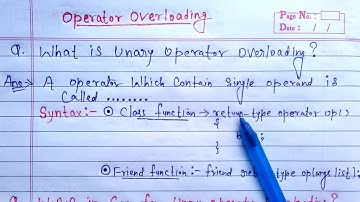 Operator Overloading
Page No.:
Date: / /
Q. What is Unary Operator Overloading?
Ans→ A operator which contain single operand is
called ........
Syntax:- ⊙ Class function → return-type operator op()
{
;
}
⊙ Friend function:- friend return type op(args list);